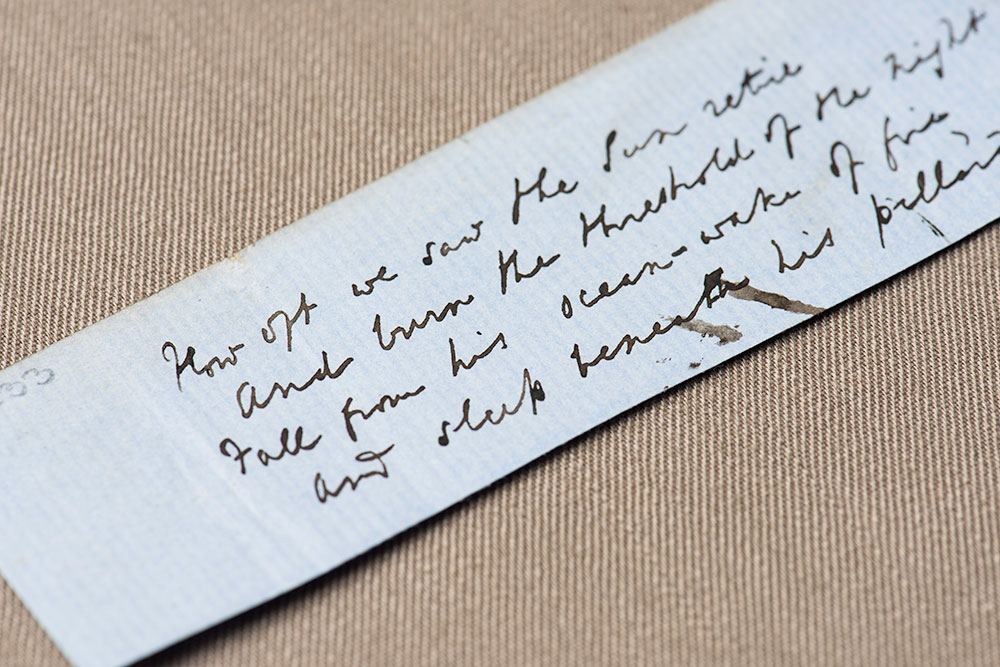 33
How oft we saw the Sun retire
And burn the threshold of the night
Fall from his ocean-wake of fire
And sleep beneath his pillar'd